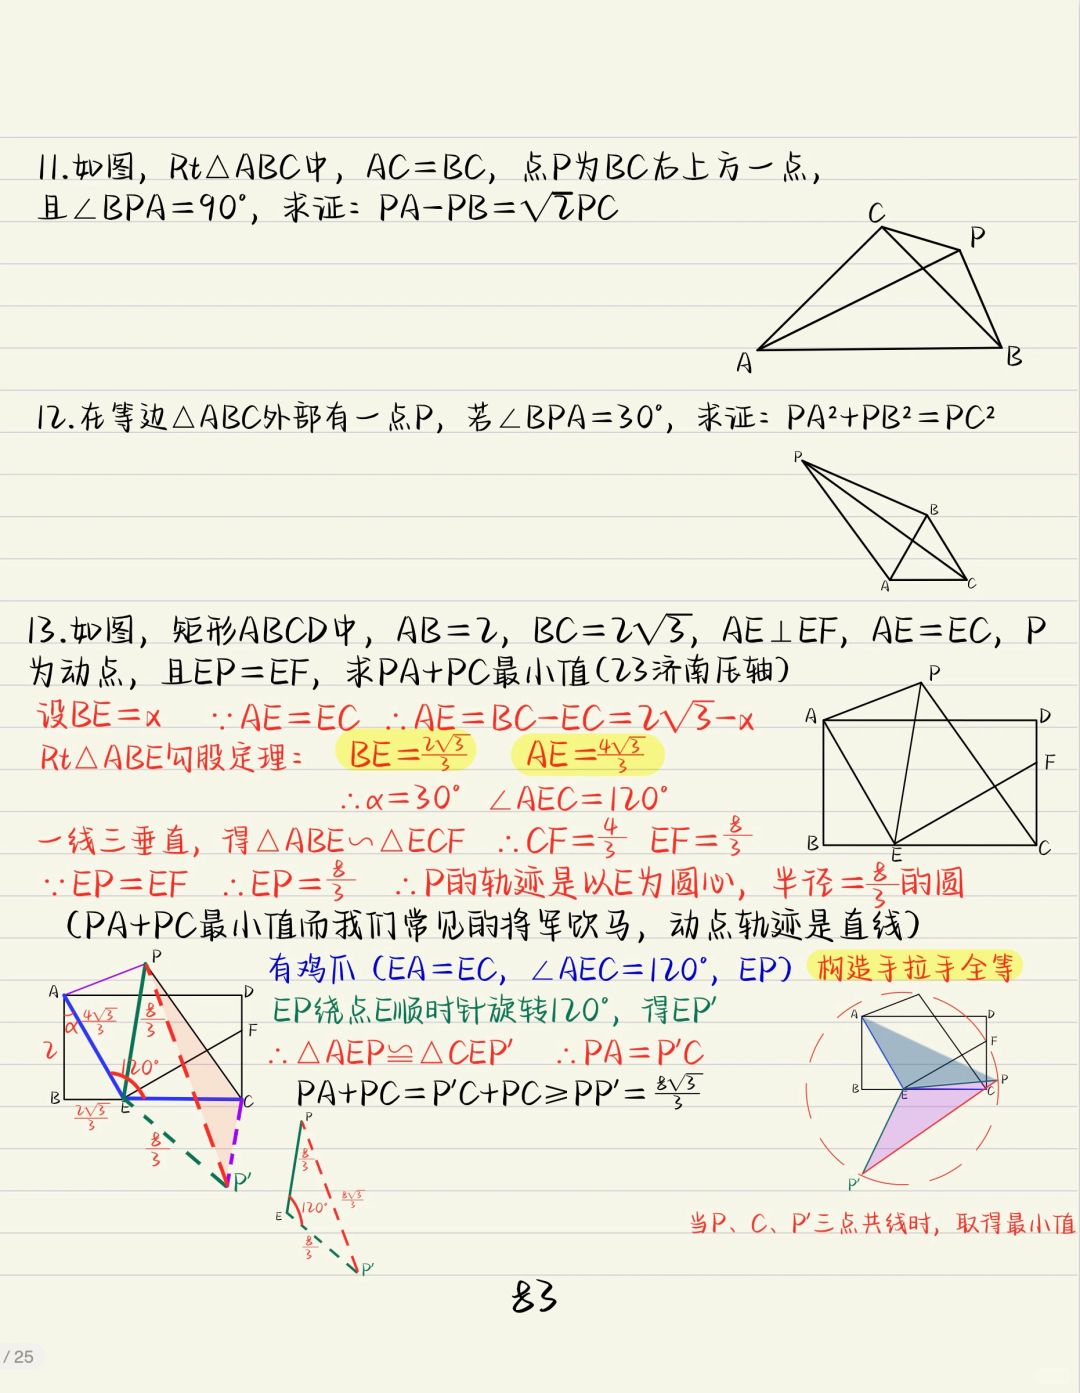 11.如图，Rt△ABC中，AC=BC，点P为BC右上方一点，
且∠BPA=90°，求证：PA-PB=√2PC
C
P
A
B
12.在等边△ABC外部有一点P，若∠BPA=30°，求证：PA²+PB²=PC²
P
B
A
C
13.如图，矩形ABCD中，AB=2，BC=2√3，AE⊥EF，AE=EC，P
为动点，且EP=EF，求PA+PC最小值(23济南压轴)
P
A
D
F
B
E
C
设BE=x ∵AE=EC ∴AE=BC-EC=2√3-x
Rt△ABE勾股定理： BE=2√3/3 AE=4√3/3
∴α=30° ∠AEC=120°
一线三垂直，得△ABE∽△ECF ∴CF=4/3 EF=8/3
∵EP=EF ∴EP=8/3 ∴P的轨迹是以E为圆心，半径=8/3的圆
(PA+PC最小值而我们常见的将军饮马，动点轨迹是直线)
有鸡爪（EA=EC，∠AEC=120°，EP） 构造手拉手全等
EP绕点E顺时针旋转120°，得EP′
∴△AEP≌△CEP′ ∴PA=P′C
PA+PC=P′C+PC≥PP′=8√3/3
P
A
D
α
4√3/3
8/3
F
2
120°
B
E
C
2√3/3
8/3
P′
P
8/3
8√3/3
E
120°
8/3
P′
A
D
F
P
B
E
C
P′
当P、C、P′三点共线时，取得最小值
83
/ 25